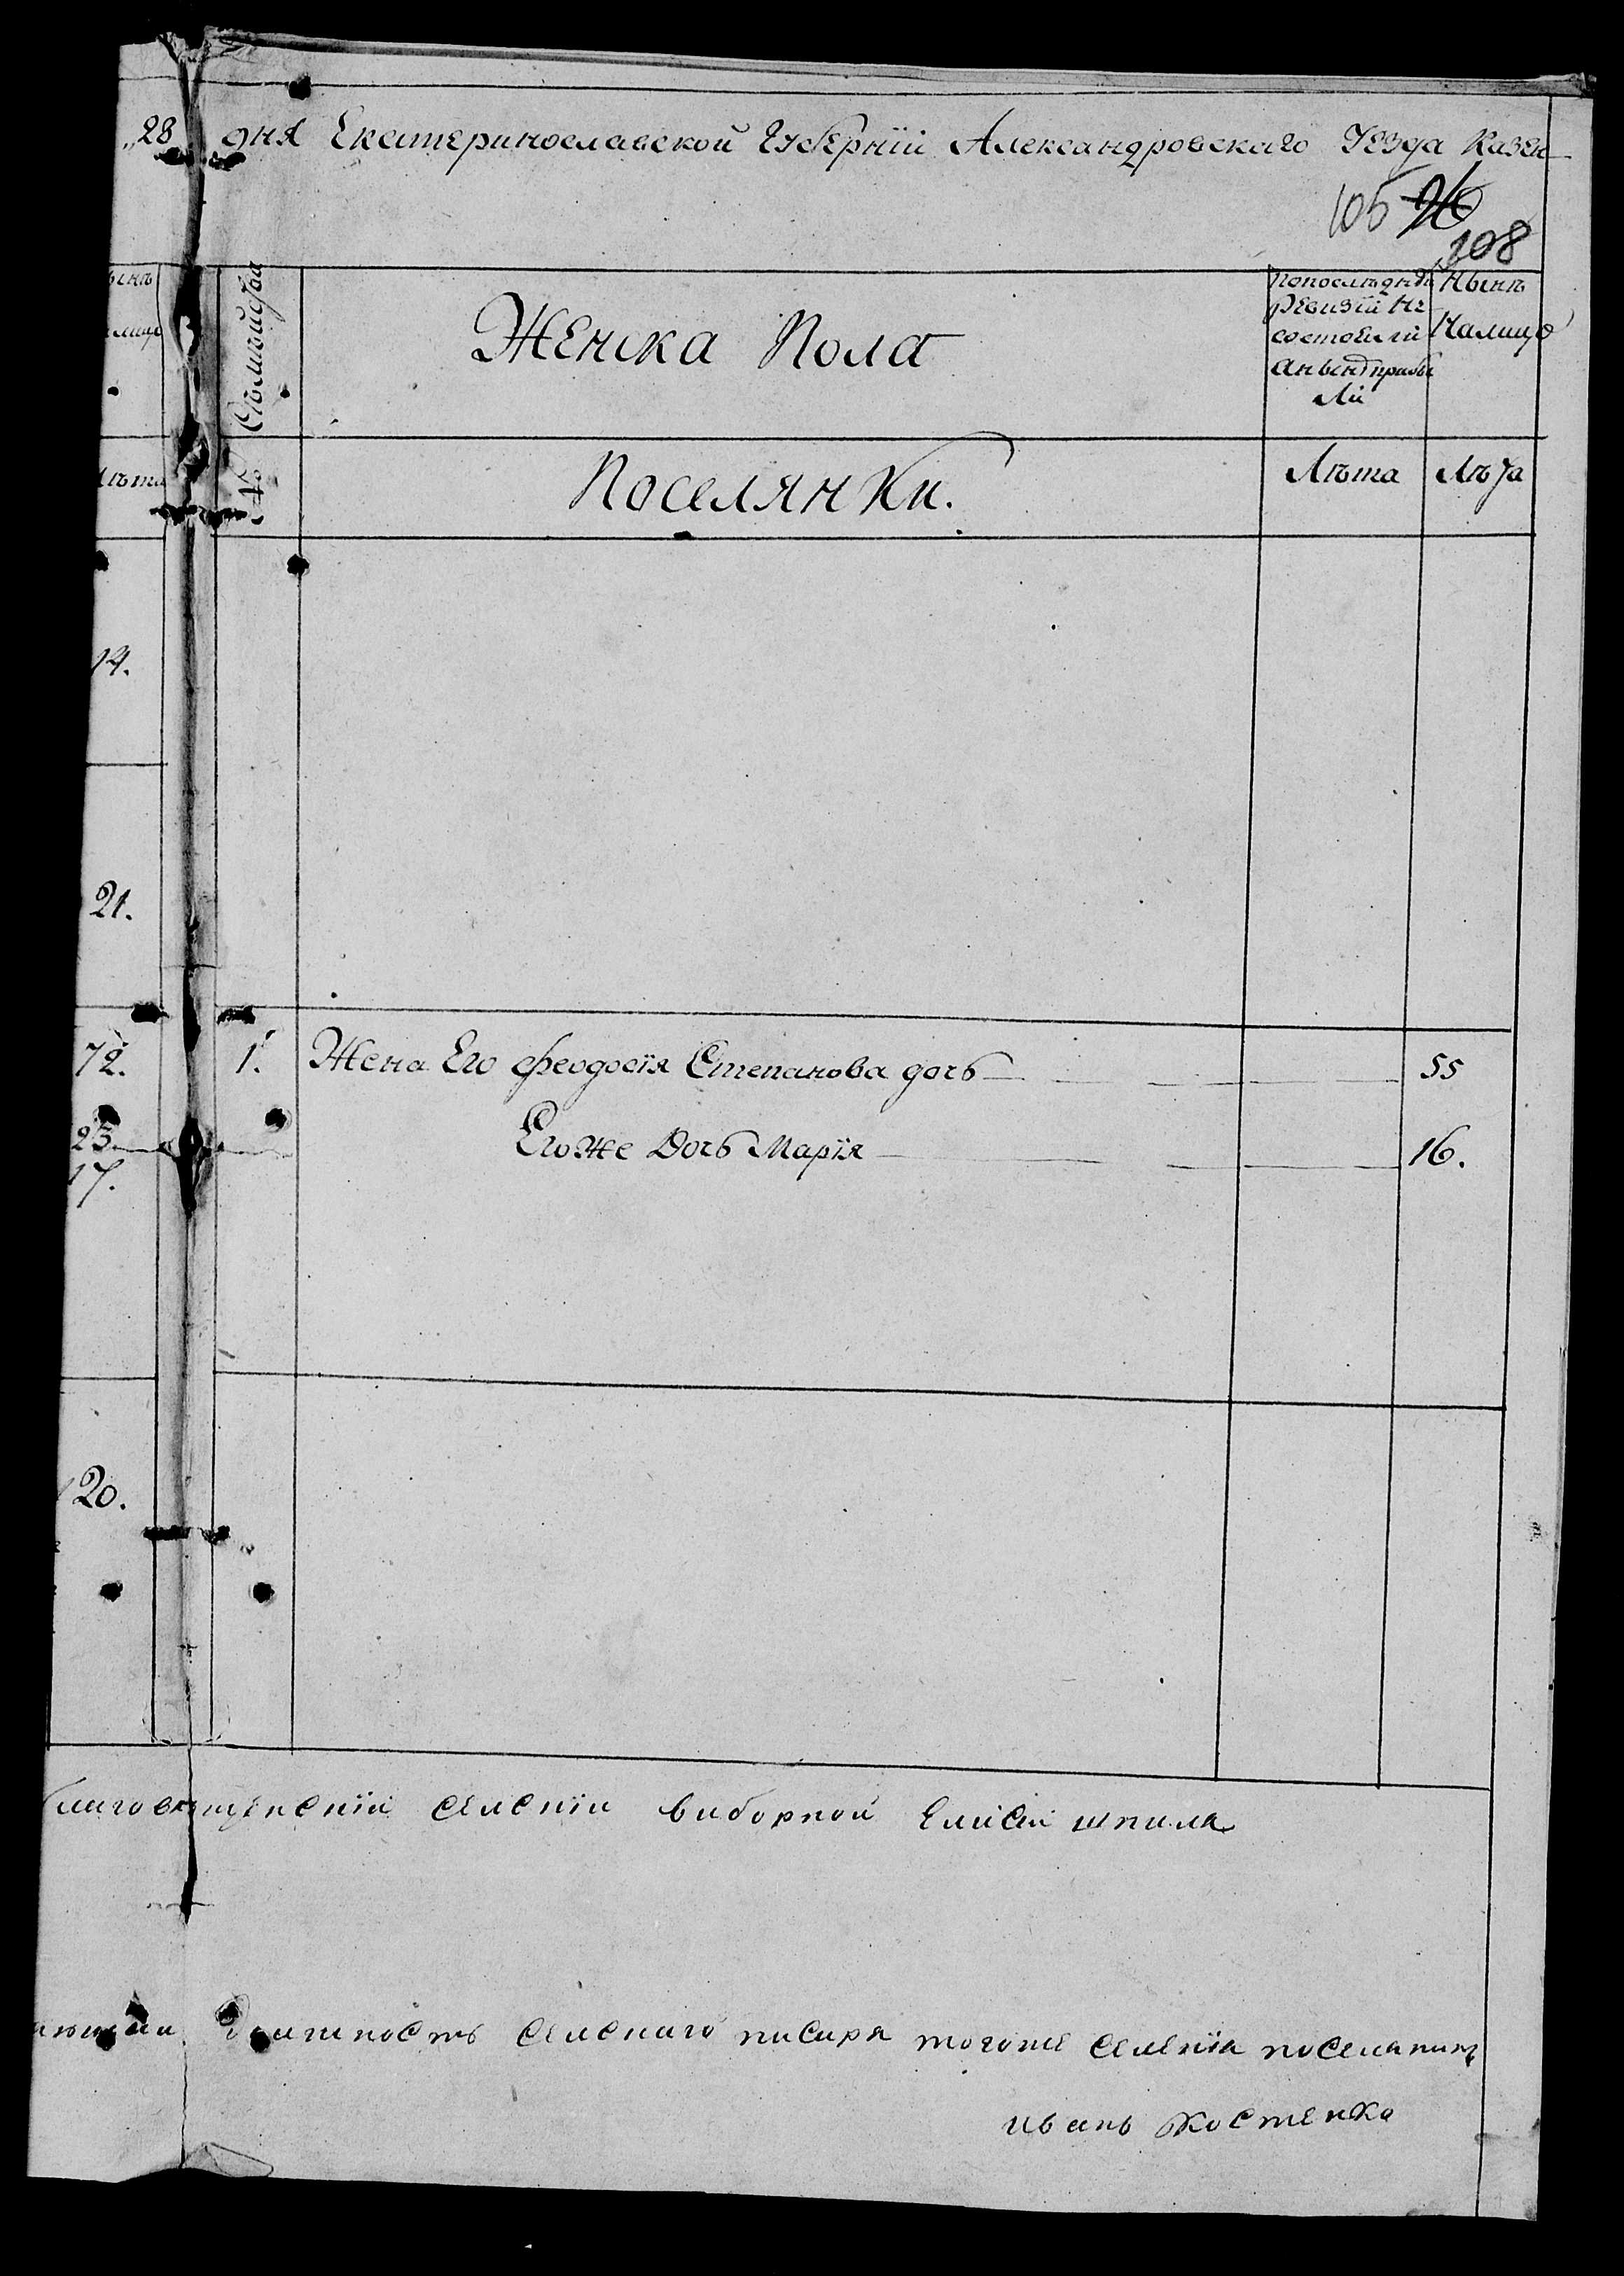 28 дня Екатеринославской Губернïи Александровскаго Уезда Казен
105
108
Женска Пола
попоследнеи
ревизïи не
состояли
аныне прибы
ли
Нынѣ
Налицо
лѣта
№
Поселянки.
Лѣта
Лѣта
14.
21.
72.
1.
Жена Его Феодосïя Степанова дочь
55
23
Егоже Дочь Марïя
16.
17.
20.
благовещенскïи селенïи виборной Елисеи шпила
должность селскаго писаря тогоже селенïя поселянинъ
иванъ Костенко